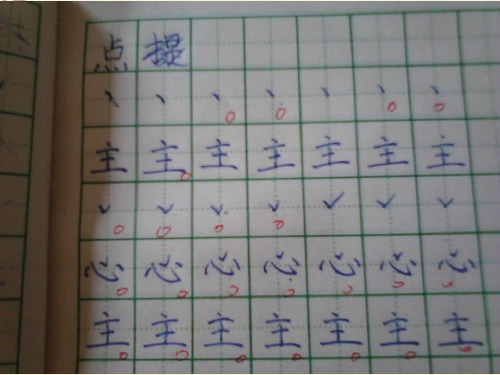 点提
丶丶丶丶丶丶丶
主主主主主主主
心心心心心心心
主主主主主主主